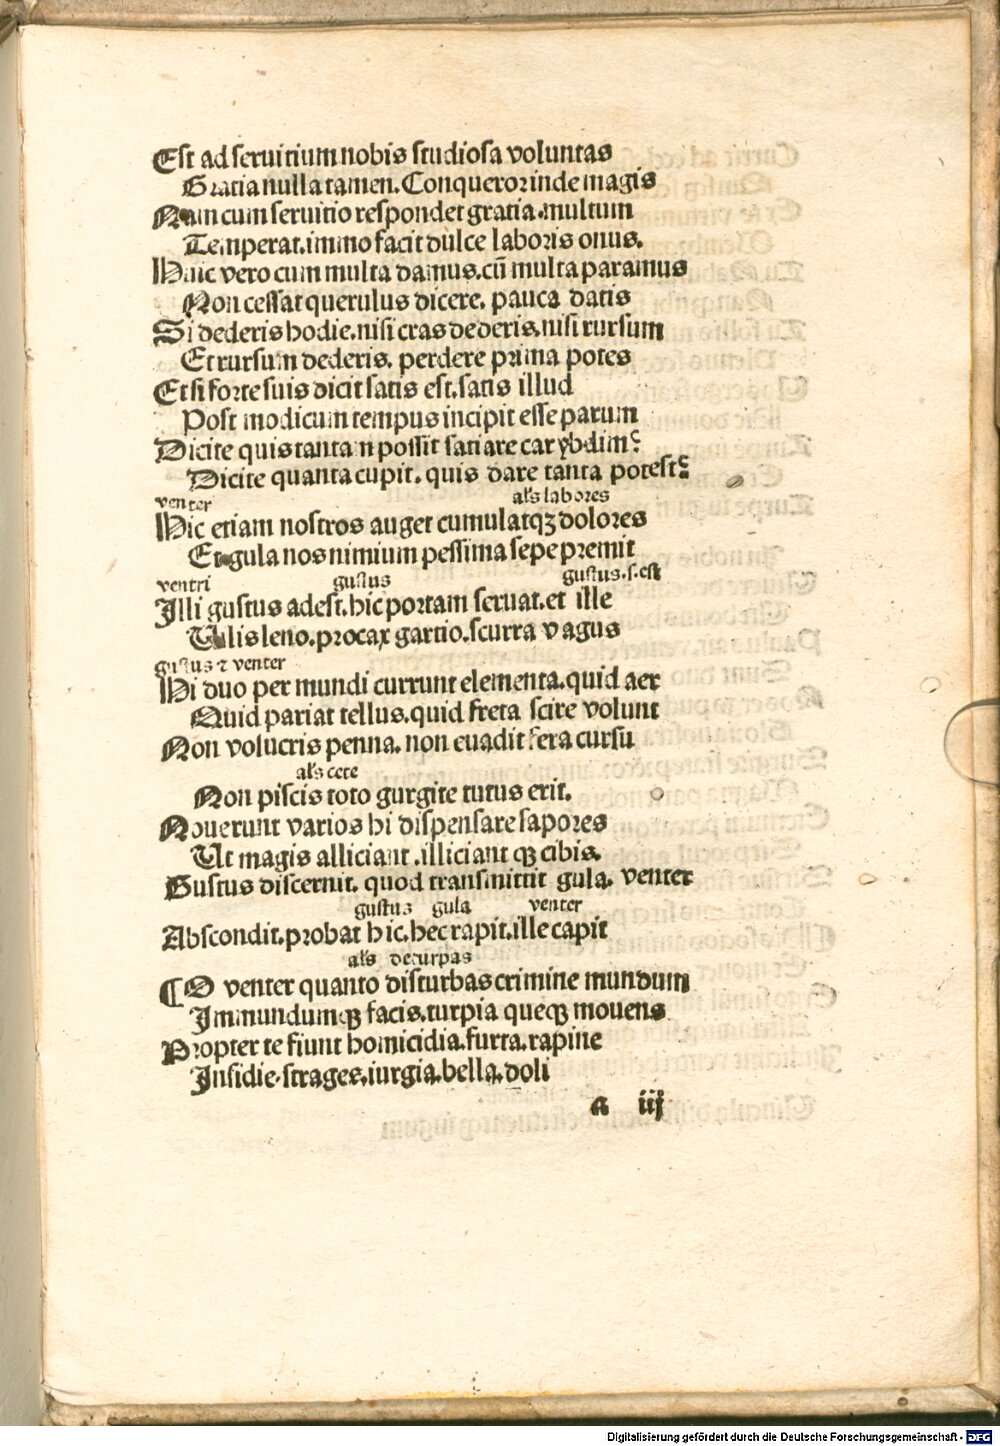 Est ad seruitium nobis studiosa voluntas
Gratia nulla tamen. Conqueror inde magis
Nam cum seruitio respondet gratia. multum
Temperat. immo facit dulce laboris onus.
Huic vero cum multa damus. cū multa paramus
Non cessat querulus dicere. pauca datis
Si dederis hodie. nisi cras dederis. nisi rursum
Et rursum dederis. perdere prima potes
Et si forte suis dicit satis est. satis illud
Post modicum tempus incipit esse parum
Dicite quis tantam possit satiare carybdim?
Dicite quanta cupit. quis dare tanta potest?
venter als labores
Hic etiam nostros auget cumulatqꝫ dolores
Et gula nos nimium pessima sepe premit
ventri gustus gustus. s. est
Illi gustus adest. hic portam seruat. et ille
Uilis leno. procax gartio. scurra vagus
gustus ⁊ venter
Hi duo per mundi currunt elementa. quid aer
Quid pariat tellus. quid freta scire volunt
Non volucris penna. non euadit fera cursu
als cete
Non piscis toto gurgite tutus erit.
Nouerunt varios hi dispensare sapores
Ut magis alliciant. illiciant qꝫ cibis.
Gustus discernit. quod transmittit gula. venter
gustus gula venter
Abscondit. probat hic. hec rapit. ille capit
als deturpas
¶ O venter quanto disturbas crimine mundum
Immundumqꝫ facis. turpia queqꝫ mouens
Propter te fiunt homicidia. furta. rapine
Insidie. strages. iurgia. bella. doli
a iij
Digitalisierung gefördert durch die Deutsche Forschungsgemeinschaft - DFG